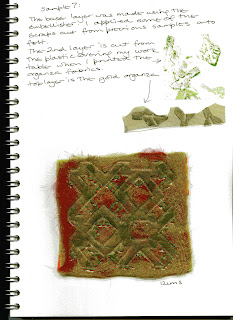 Sample 7:
The base layer was made using the
embellisher I applied some of the
scraps cut from previous samples onto
felt.
The 2nd layer is cut from
the plastic covering my work
table when I printed the
organza fabrics.
top layer is the gold organza
12cms